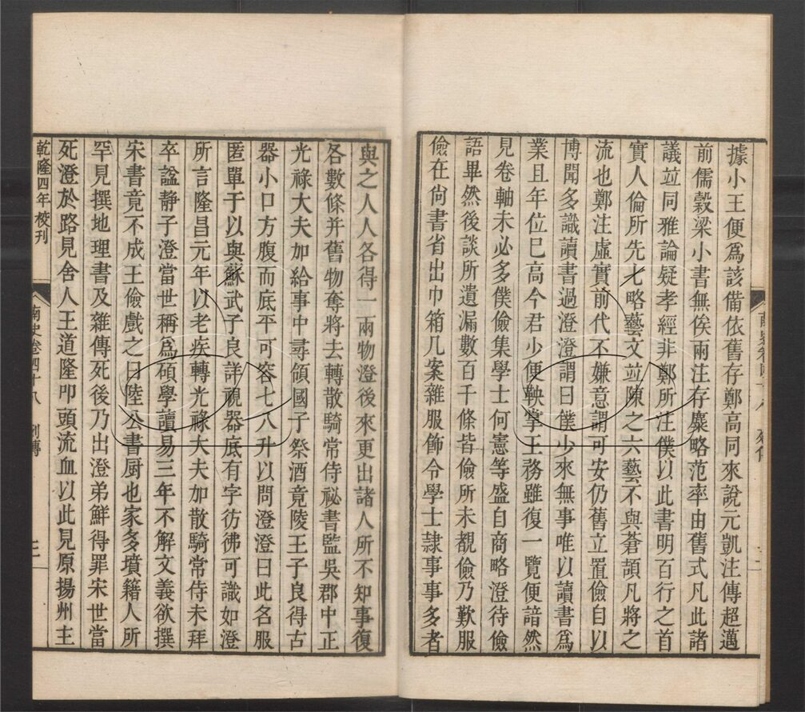 據小王便爲該備依舊存鄭高同來說元凱注傳超邁
前儒穀梁小書無俟兩注存麋略范率由舊式凡此諸
議竝同雅論疑孝經非鄭所注僕以此書明百行之首
實人倫所先七略藝文竝陳之六藝不與蒼頡凡將之
流也鄭注虛實前代不嫌意謂可安仍舊立置儉自以
博聞多識讀書過澄澄謂曰僕少來無事唯以讀書爲
業且年位已高今君少便鞅掌王務雖復一覽便諳然
見卷軸未必多僕儉集學士何憲等盛自商略澄待儉
語畢然後談所遺漏數百千條皆儉所未覩儉乃歎服
儉在尚書省出巾箱几案雜服飾令學士隷事事多者
與之人人各得一兩物澄後來更出諸人所不知事復
各數條并舊物奪將去轉散騎常侍祕書監吳郡中正
光祿大夫加給事中尋領國子祭酒竟陵王子良得古
器小口方腹而底平可容七八升以問澄澄曰此名服
匿單于以與蘇武子良詳視器底有字彷彿可識如澄
所言隆昌元年以老疾轉光祿大夫加散騎常侍未拜
卒諡靜子澄當世稱爲碩學讀易三年不解文義欲撰
宋書竟不成王儉戲之曰陸公書厨也家多墳籍人所
罕見撰地理書及雜傳死後乃出澄弟鮮得罪宋世當
死澄於路見舍人王道隆叩頭流血以此見原揚州主
乾隆四年校刊
南史卷四十八 列傳 三